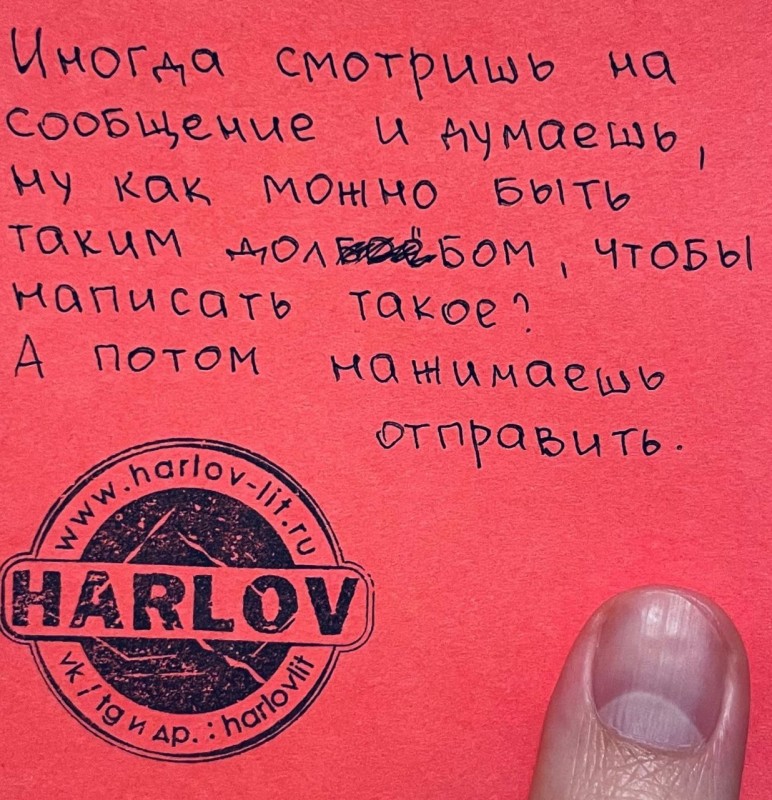 Иногда смотришь на
сообщение и думаешь,
ну как можно быть
таким долбом, чтобы
написать такое?
А потом нажимаешь
отправить.
www.harlov-lit.ru
HARLOV
vk / tg и др. : harlovlit